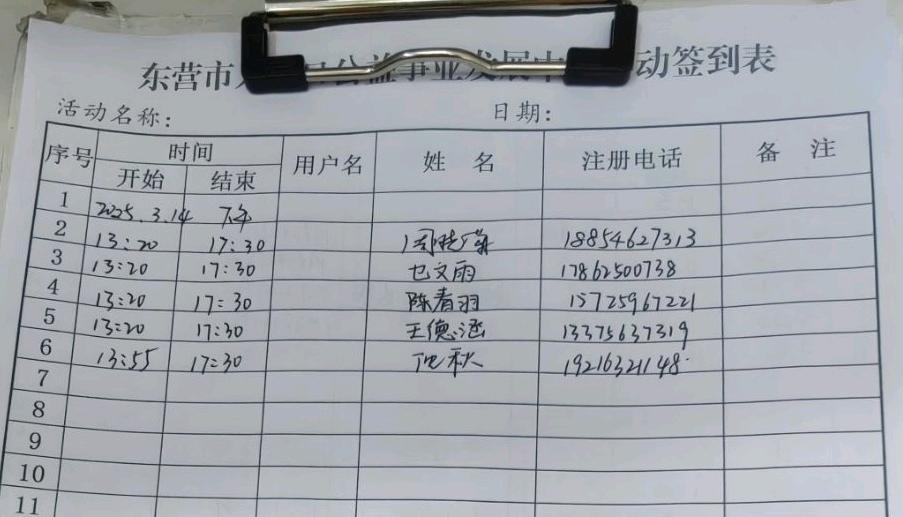 东营市 公益事业发展中 动签到表
活动名称： 日期：
序号 时间 用户名 姓 名 注册电话 备 注
开始 结束
1 2025.3.14 下午
2 13:20 17:30 周 18854627313
3 13:20 17:30 文雨 17862500738
4 13:20 17:30 陈春羽 15725967221
5 13:20 17:30 王德涵 13375637319
6 13:55 17:30 倪秋 19216321148
7
8
9
10
11